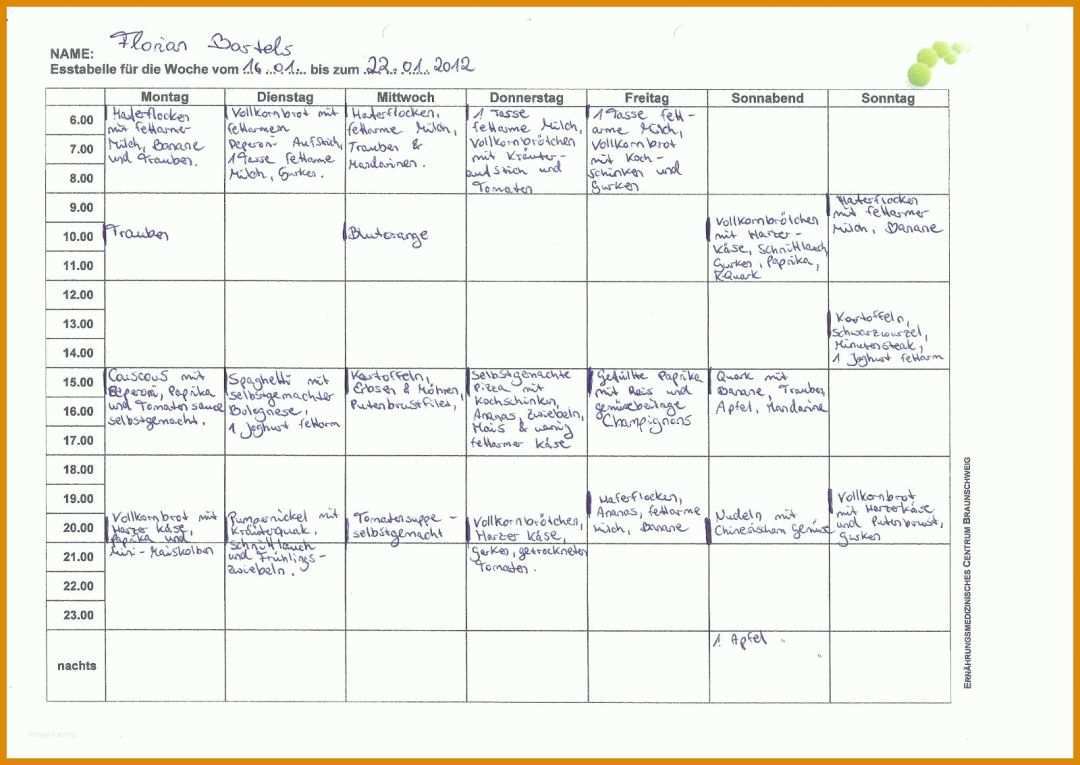 NAME: Florian Bartels
Esstabelle für die Woche vom 16.01. bis zum 22.01.2012
Montag Dienstag Mittwoch Donnerstag Freitag Sonnabend Sonntag
6.00
7.00
8.00
Haferflocken
mit fettarmer
Milch, Banane
und Trauben.
Vollkornbrot mit
fettarmem
Peperon- Aufstich,
1 Tasse fettarme
Milch, Gurken.
Haferflocken,
fettarme Milch,
Trauben &
Mandarinen.
1 Tasse
fettarme Milch,
Vollkornbrötchen
mit Kräuter-
aufstich und
Tomaten
1 Tasse fett-
arme Milch,
Vollkornbrot
mit Koch-
schinken und
Gurken
9.00
10.00
11.00
Trauben
Blutorange
Vollkornbrötchen
mit Harzer-
Käse, Schnittlauch
Gurken, Paprika,
Quark
Haferflocken
mit fettarmer
Milch, Banane
12.00
13.00
14.00
Kartoffeln,
Schwarzwurzel,
Minutensteak,
1 Joghurt fettarm
15.00
16.00
17.00
Couscous mit
Peperoni, Paprika
und Tomatensauce
selbstgemacht.
Spaghetti mit
selbstgemachter
Bolognese,
1 Joghurt fettarm
Kartoffeln,
Erbsen & Möhren,
Putenbrustfilet,
Selbstgemachte
Pizza mit
Kochschinken,
Ananas, Zwiebeln,
Mais & wenig
fettarmer Käse
Gefüllte Paprika
mit Reis und
gemüsebeilage
Champignons
Quark mit
Banane, Trauben
Apfel, Mandarine
18.00
19.00
20.00
Vollkornbrot mit
Harzer Käse,
Paprika und
Mini-Maiskolben
Pumpernickel mit
Kräuterquak,
Schnittlauch
und Frühlings-
zwiebeln.
Tomatensuppe -
selbstgemacht
Vollkornbrötchen,
Harzer Käse,
Gurken, getrockneten
Tomaten.
Haferflocken,
Ananas, fettarme
Milch, Banane
Nudeln mit
Chinesischem Gemüse
Vollkornbrot
mit Harzerkäse
und Putenbrust,
Gurken
21.00
22.00
23.00
nachts
1 Apfel
ERNÄHRUNGSMEDIZINISCHES CENTRUM BRAUNSCHWEIG